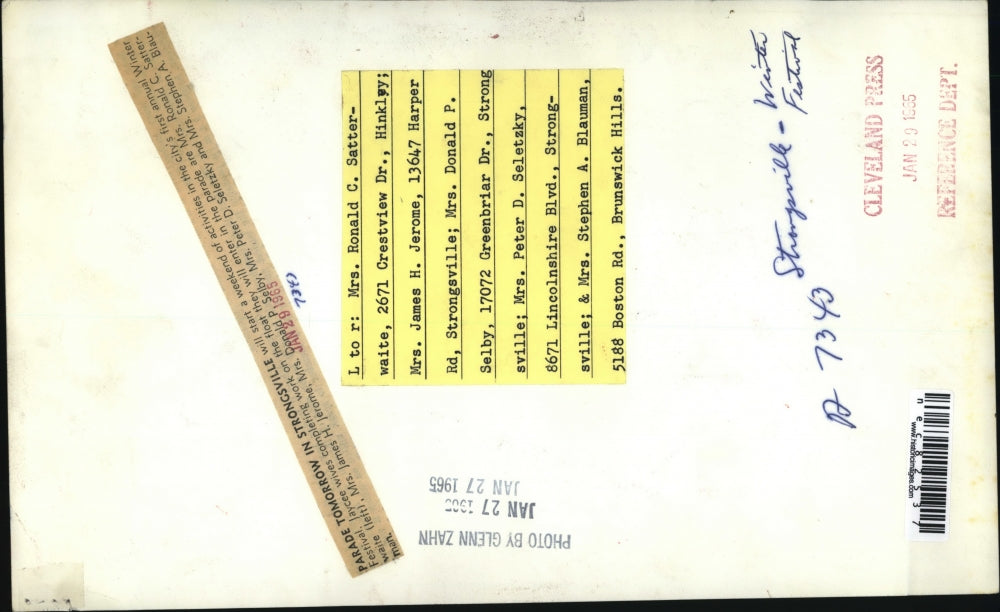 PARADE TOMORROW IN STRONGSVILLE will start a weekend of activities in the city's first annual Winter
Festival. Jaycee wives completing work on the float they will enter in the parade are Mrs. Ronald C. Satter-
waite (left), Mrs. James H. Jerome, Mrs. Donald P. Selby, Mrs. Peter D. Seletzky and Mrs. Stephen A. Blau-
man.
JAN 29 1965
7343
L to r: Mrs. Ronald C. Satter-
waite, 2671 Crestview Dr., Hinkley;
Mrs. James H. Jerome, 13647 Harper
Rd, Strongsville; Mrs. Donald P.
Selby, 17072 Greenbriar Dr., Strong
sville; Mrs. Peter D. Seletzky,
8671 Lincolnshire Blvd., Strong-
sville; & Mrs. Stephen A. Blauman,
5188 Boston Rd., Brunswick Hills.
7343 Strongsville - Winter
Festival
CLEVELAND PRESS
JAN 29 1965
REFERENCE DEPT.
PHOTO BY GLENN ZAHN
JAN 27 1965
JAN 27 1965
www.historicimages.com
nec82537